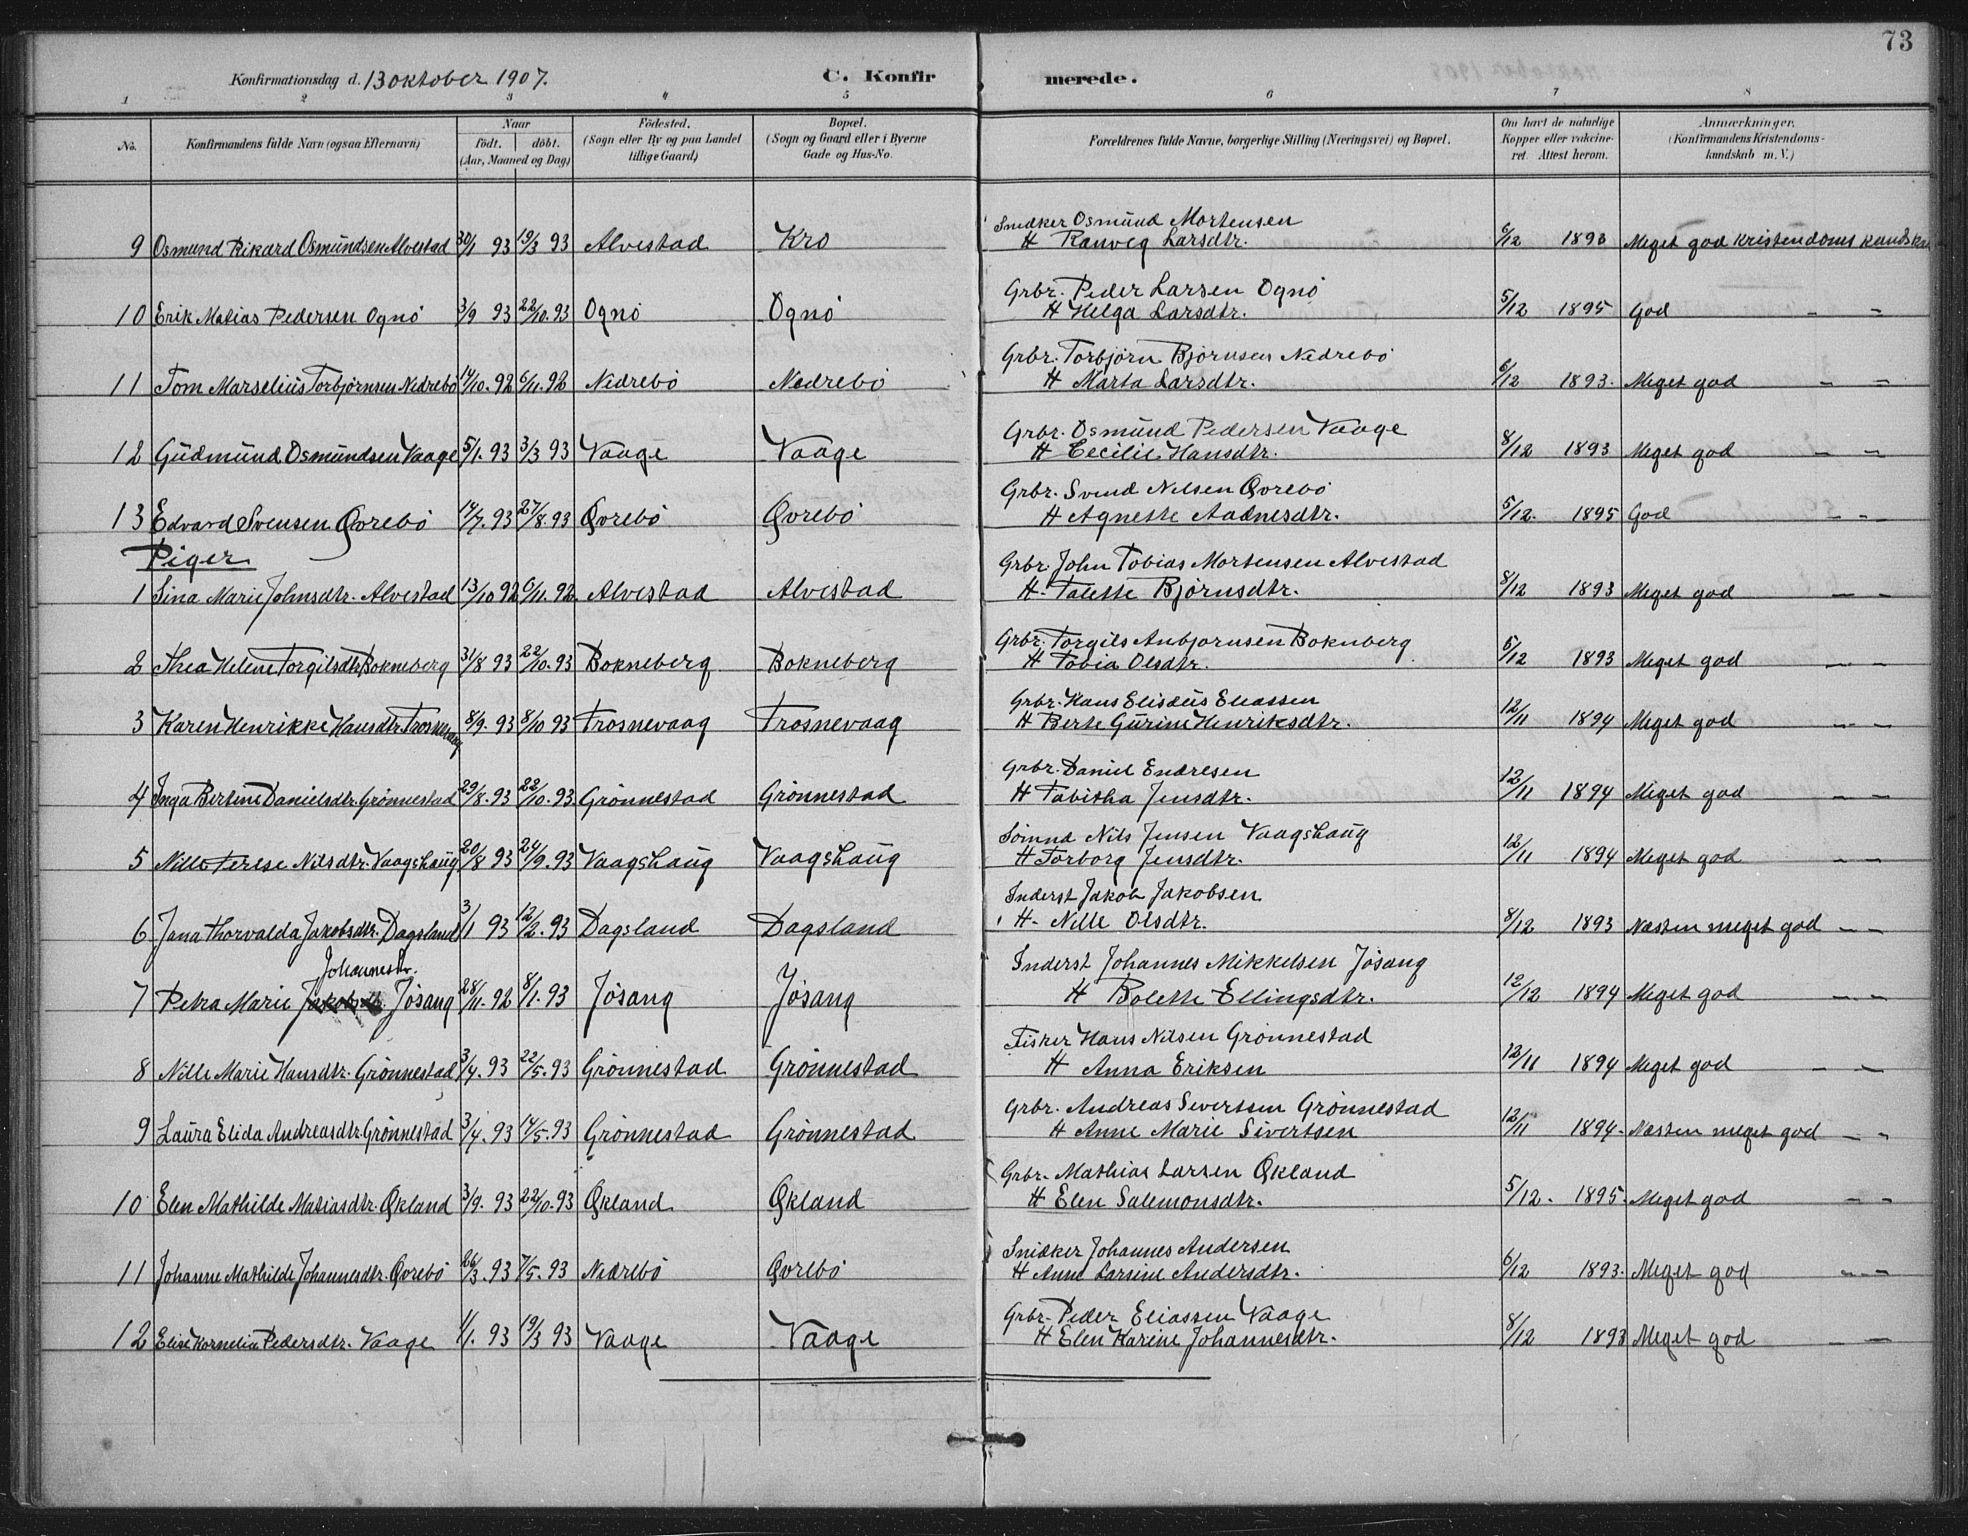 73
Konfirmationsdag d. 13 oktober 1907. C. Konfirmerede.
1 2 3 4 5 6 7 8
No. Konfirmandens fulde Navn (ogsaa Efternavn) Naar födt. döbt. (Aar, Maaned og Dag) Födested. (Sogn eller By og paa Landet tillige Gaard) Bopæl. (Sogn og Gaard eller i Byerne Gade og Hus-No. Forældrenes fulde Navne, borgerlige Stilling (Næringsvei) og Bopæl. Om havt de naturlige Kopper eller vakcineret. Attest herom. Anmærkninger. (Konfirmandens Kristendomskundskab m. V.)
Snedker Osmund Mortensen
9 Osmund Rikard Osmundsen Alvestad 30/1 93 19/3 93 Alvestad Kro H Ranveg Larsdtr. 6/12 1893 Meget god Kristendoms kundskab
Grbr. Peder Larsen Ognö
10 Erik Matias Pedersen Ognö 3/9 93 22/10.93 Ognö Ognö H Helga Larsdtr. 5/12 1895 God - -
Grbr. Torbjörn Björnsen Nedrebö
11 Tom Marselius Torbjörnsen Nedrebö 14/10.92 6/11.92 Nedrebö Nedrebö H Marta Larsdtr. 6/12 1893. Meget god - -
Grbr. Osmund Pedersen Vaage
12 Gudmund Osmundsen Vaage 5/1.93 3/3 93 Vaage Vaage H Cecilie Hansdtr. 8/12 1893 Meget god - -
Grbr. Svend Nilsen Øvrebö
13 Edvard Svensen Øvrebö 14/7.93 27/8.93 Øvrebö Øvrebö H Agnette Aadnesdtr. 5/12. 1895 God - -
Piger
Grbr. John Tobias Mortensen Alvestad
1 Sina Marie Johnsdtr. Alvestad 13/10 92 6/11.92. Alvestad Alvestad H. Talette Björnsdtr. 8/12 1893 Meget god - -
Grbr. Torgils Anbjornsen Boknberg
2 Thea Helene Torgilsdtr. Bokneberg 31/8 93 22/10.93 Bokneberg Bokneberg H Tobia Olsdtr. 5/12 1893 Meget god - -
Grbr. Hans Elisæus Eliassen
3 Karen Henrikke Hansdtr. Trosnevaag 8/9. 93 8/10 93 Trosnevaag Trosnevaag H Berte Gurine Henriksdtr. 12/11 1894 Meget god - -
Grbr. Daniel Endresen
4 Inga Bertine Danielsdtr. Grönnestad 29/8.93 22/10.93 Grönnestad Grönnestad H Tabitha Jensdtr. 12/11 1894 Meget god - -
Sömnd Nils Jensen Vaagshaug
5 Nille Terese Nilsdtr. Vaagshaug 20/8 93 24/9.93 Vaagshaug Vaagshaug H Torborg Jensdtr. 12/11 1894 Meget god - -
Inderst Jakob Jakobsen
6 Jana Thorvalda Jakobsdtr. Dagsland 3/1 93 12/2.93 Dagsland Dagsland H. Nille Olsdtr. 8/12 1893 Næsten meget god - -
Johannesdtr.
Inderst Johannes Mikkelsen Jösang
7 Petra Marie Jakobsdtr Jösang 28/11.92 8/1.93 Jösang Jösang H Bolette Ellingsdtr. 12/12 1894 Meget god - -
Fisker Hans Nilsen Grönnestad
8 Nille Marie Hansdtr. Grönnestad 3/4.93 22/5.93 Grönnestad Grönnestad H Anna Eriksen 12/11 1894 Meget god - -
Grbr. Andreas Sivertsen Grönnestad
9 Laura Elida Andreasdtr. Grönnestad 3/4.93 14/5.93 Grönnestad Grönnestad H Anne Marie Sivertsen 12/11 1894. Næsten meget god - -
Grbr. Mathias Larsen Økland
10 Elen Mathilde Matiasdtr. Økland 3/9.93 22/10.93 Økland Økland H Elen Salemonsdtr. 5/12. 1895. Meget god - -
Snidker Johannes Andersen
11 Johanne Mathilde Johannesdtr. Øvrebö 26/3.93 7/5.93 Nedrebö Øvrebö H Anne Larsine Andersdtr. 6/12 1893. Meget god - -
Grbr. Peder Eliassen Vaage
12 Elise Kornelia Pedersdtr. Vaage 1/1.93 19/3 93 Vaage Vaage H Elen Karine Johannesdtr. 8/12 1893 Meget god - -